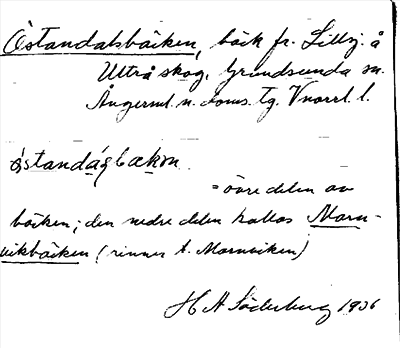 Östandalsbäcken, bäck fr. Lillsj. å
Ultrå skog, Grundsunda sn.
Ångerml. n. doms. tg. Vnorrl. l.
östandágbækən
= övre delen av
bäcken; den nedre delen kallas Marn-
vikbäcken (rinner t. Marnviken)
H A Söderberg 1936